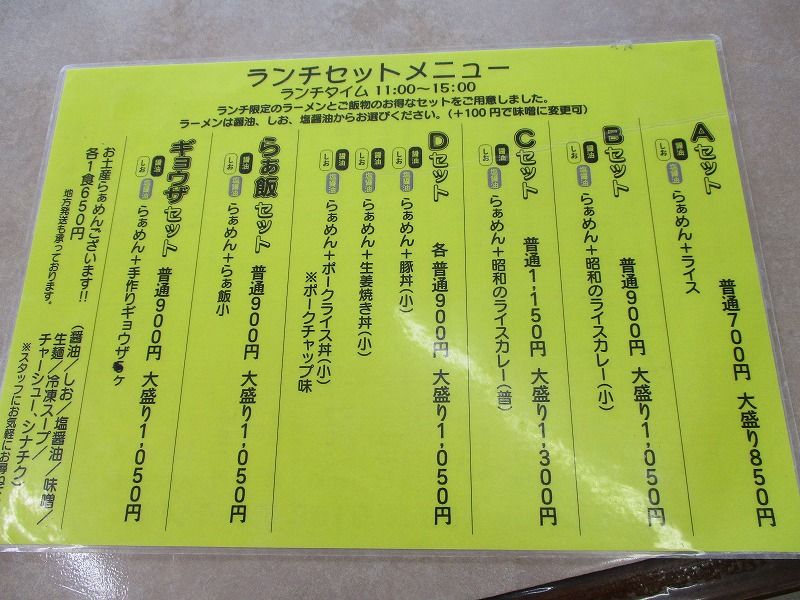 ランチセットメニュー
ランチタイム 11:00～15:00
ランチ限定のラーメンとご飯物のお得なセットをご用意しました。
ラーメンは醤油、しお、塩醤油からお選びください。(+100円で味噌に変更可)
Aセット 普通700円 大盛り850円
醤油 しお 塩醤油 らぁめん+ライス
Bセット 普通900円 大盛り1,050円
醤油 しお 塩醤油 らぁめん+昭和のライスカレー(小)
Cセット 普通1,150円 大盛り1,300円
醤油 しお 塩醤油 らぁめん+昭和のライスカレー(普)
Dセット 各 普通900円 大盛り1,050円
醤油 しお 塩醤油 らぁめん+豚丼(小)
醤油 しお 塩醤油 らぁめん+生姜焼き丼(小)
醤油 しお 塩醤油 らぁめん+ポークライス丼(小)
※ポークチャップ味
らぁ飯セット 普通900円 大盛り1,050円
醤油 しお 塩醤油 らぁめん+らぁ飯小
ギョウザセット 普通900円 大盛り1,050円
醤油 しお 塩醤油 らぁめん+手作りギョウザ ヶ
お土産らぁめんございます!!
各1食650円
地方発送も承っております。
(醤油/しお/塩醤油/味噌/
生麺/冷凍スープ/
チャーシュー、シナチク)
※スタッフにお気軽にお尋ね